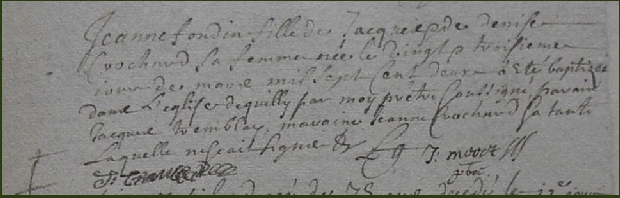 Jeanne fondin fille de Jacque et de denise
Crochard sa femme née le vingt troissieme
jour de mars mil sept cent deux à été baptizée
dans l'eglise dequilly par moy prêtre soussigné parain
Jacque tremblay, maraine Jeanne Crochard sa tante
laquelle ne scait signer
ptre